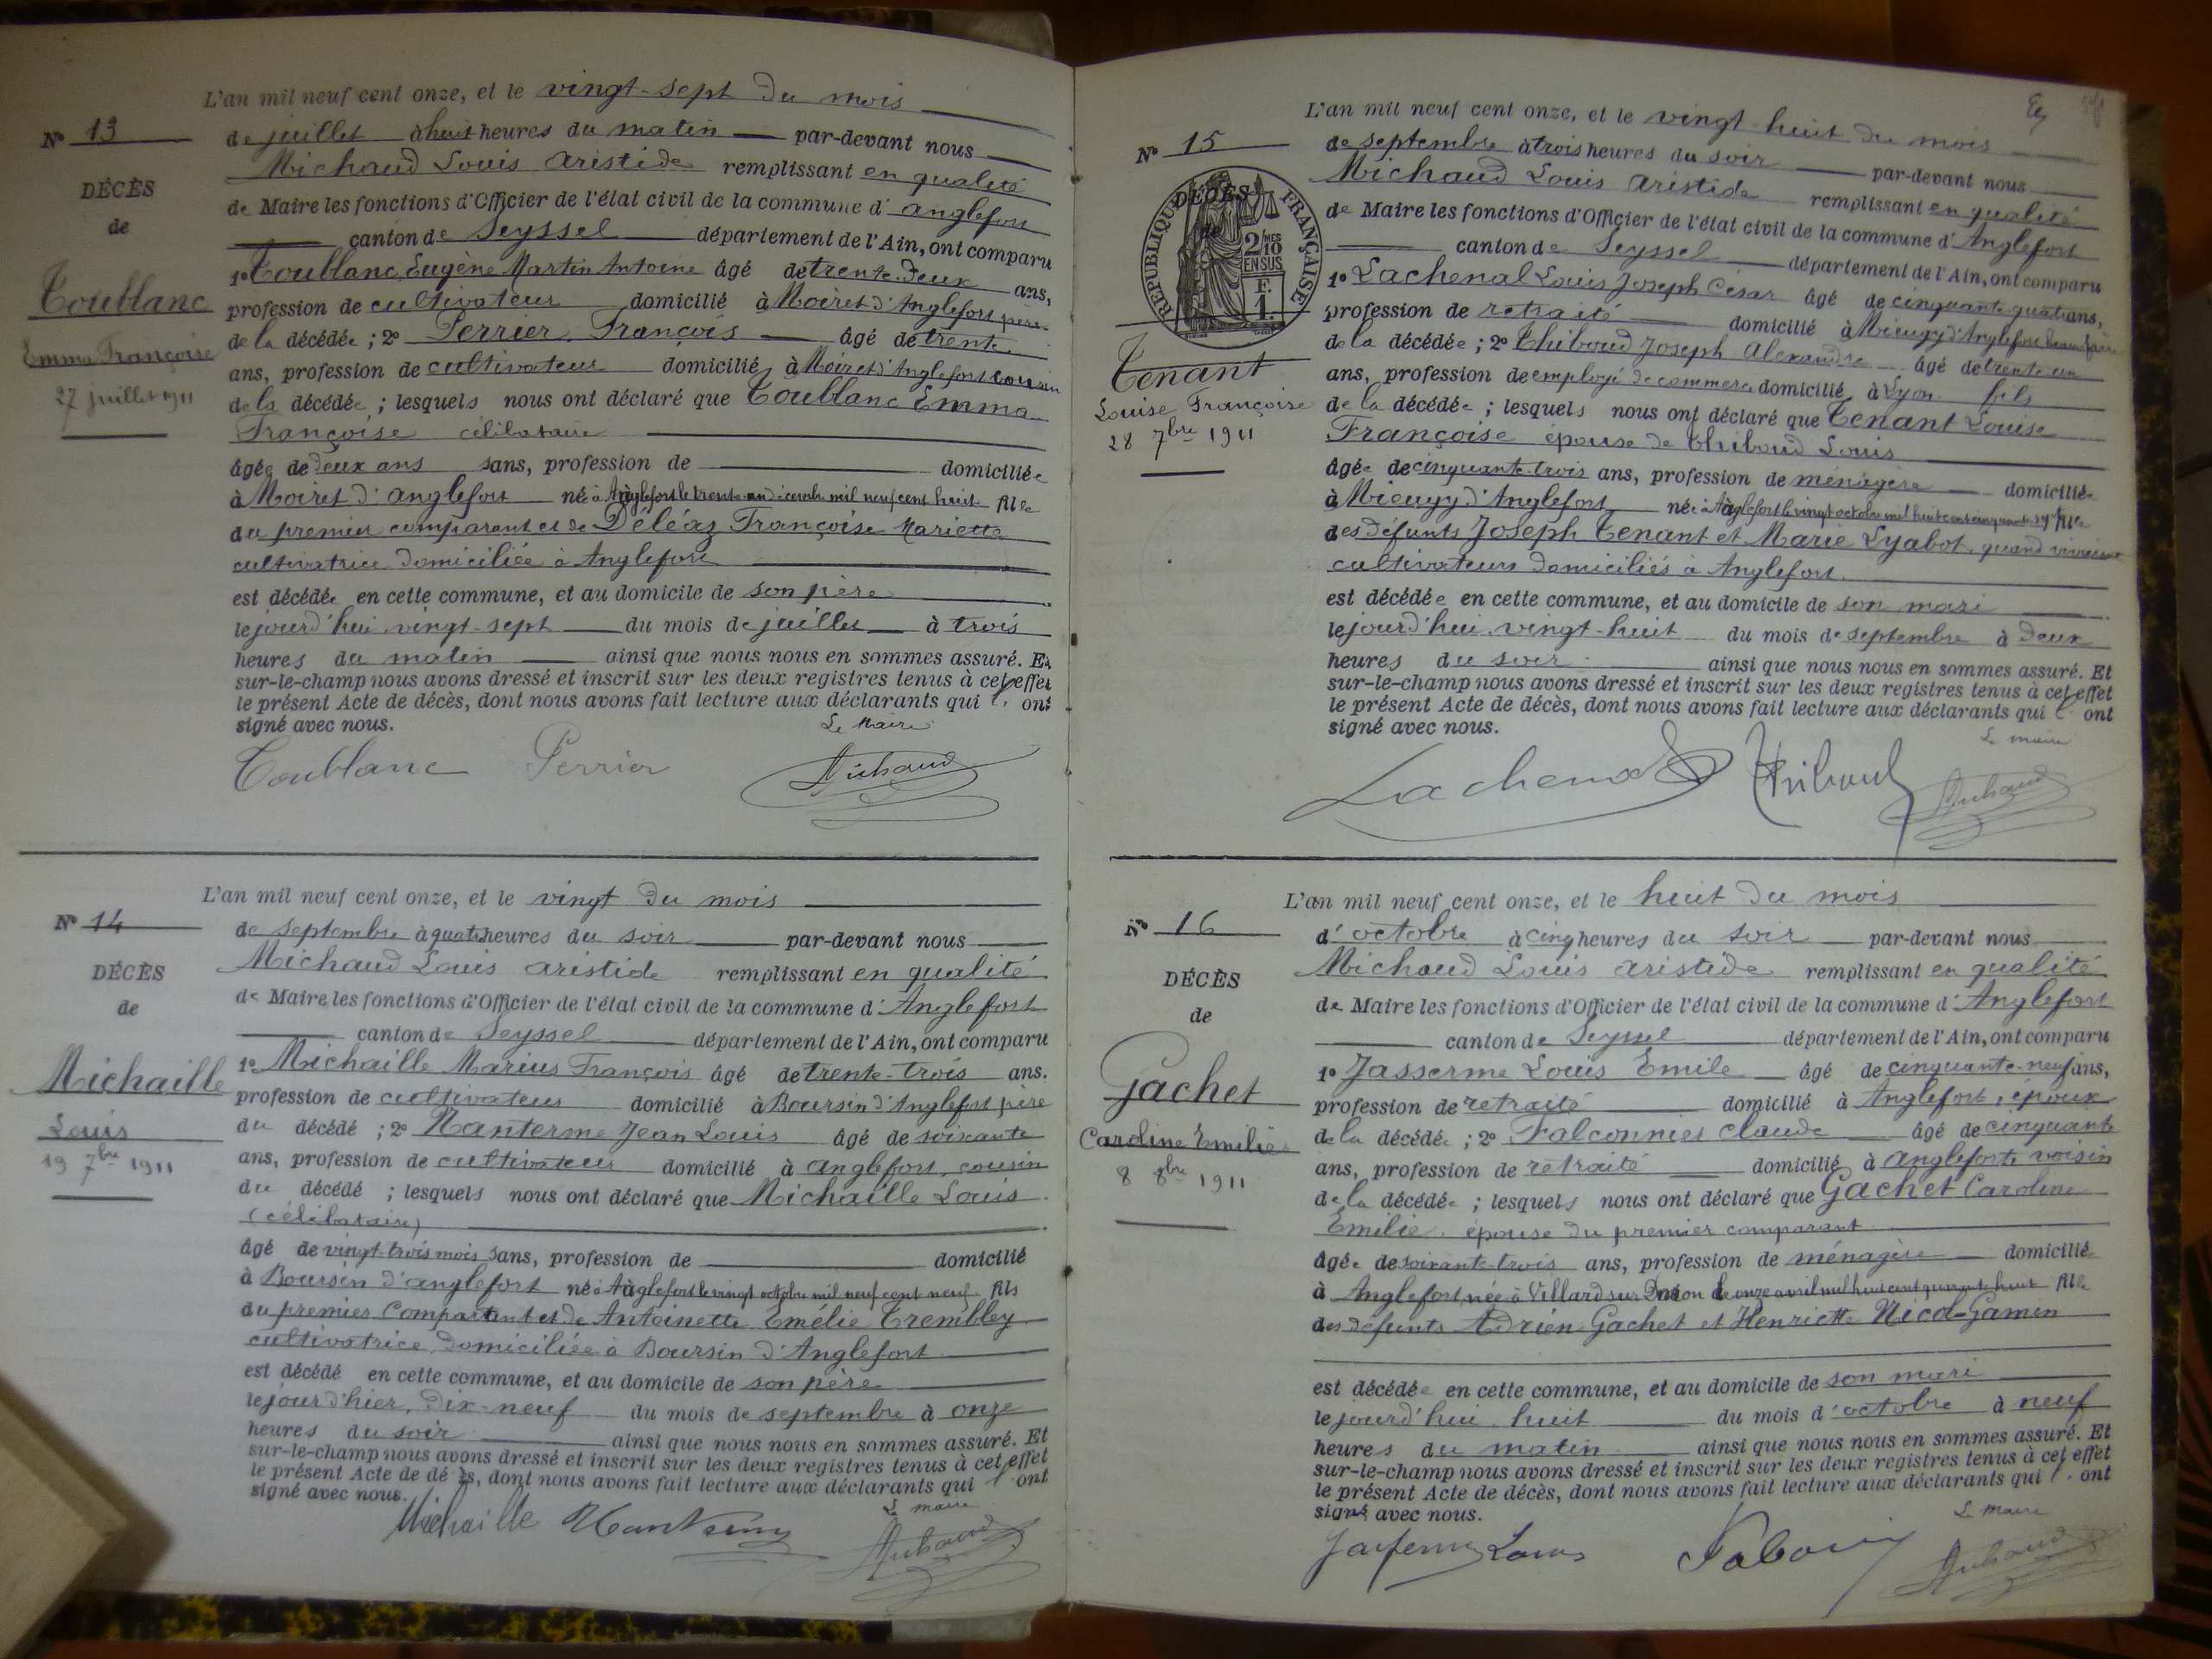 L'an mil neuf cent onze, et le vingt-sept du mois
de juillet à huit heures du matin par-devant nous
Michaud Louis Aristide remplissant en qualité
de Maire les fonctions d'Officier de l'état civil de la commune d'Anglefort
canton de Seyssel département de l'Ain, ont comparu
1° Toublanc Eugène Martin Antoine âgé de trente-deux ans,
profession de cultivateur domicilié à Moiret d'Anglefort père
de la décédée ; 2° Perrier François âgé de trente
ans, profession de cultivateur domicilié à Moiret d'Anglefort cousin
de la décédée ; lesquels nous ont déclaré que Toublanc Emma
Françoise célibataire
âgée de deux ans sans, profession de domiciliée
à Moiret d'Anglefort née à Anglefort le trente un décembre mil neuf cent huit fille
du premier comparant et de Déléaz Françoise Mariette
cultivatrice domiciliée à Anglefort
est décédée en cette commune, et au domicile de son père
le jourd'hui vingt-sept du mois de juillet à trois
heures du matin ainsi que nous nous en sommes assuré. Et
sur-le-champ nous avons dressé et inscrit sur les deux registres tenus à cet effet
le présent Acte de décès, dont nous avons fait lecture aux déclarants qui l' ont
signé avec nous.
Le Maire
Toublanc Perrier Michaud
N° 13
DÉCÈS
de
Toublanc
Emma Françoise
27 juillet 1911
L'an mil neuf cent onze, et le vingt du mois
de septembre à quatre heures du soir par-devant nous
Michaud Louis Aristide remplissant en qualité
de Maire les fonctions d'Officier de l'état civil de la commune d'Anglefort
canton de Seyssel département de l'Ain, ont comparu
1° Michaille Marius François âgé de trente-trois ans.
profession de cultivateur domicilié à Boursin d'Anglefort père
du décédé ; 2° Nanterme Jean Louis âgé de soixante
ans, profession de cultivateur domicilié à Anglefort, cousin
du décédé ; lesquels nous ont déclaré que Michaille Louis
(célibataire)
âgé de vingt-trois mois sans, profession de domicilié
à Boursin d'Anglefort né à Anglefort le vingt octobre mil neuf cent neuf fils
du premier Comparant et de Antoinette Emélie Trembley
cultivatrice domiciliée à Boursin d'Anglefort
est décédé en cette commune, et au domicile de son père
le jour d'hier, dix-neuf du mois de septembre à onze
heures du soir ainsi que nous nous en sommes assuré. Et
sur-le-champ nous avons dressé et inscrit sur les deux registres tenus à cet effet
le présent Acte de décès, dont nous avons fait lecture aux déclarants qui l' ont
signé avec nous.
Le maire
Michaille Michaud
N° 14
DÉCÈS
de
Michaille
Louis
19 7bre 1911
L'an mil neuf cent onze, et le vingt-huit du mois
de septembre à trois heures du soir par-devant nous
Michaud Louis Aristide remplissant en qualité
de Maire les fonctions d'Officier de l'état civil de la commune d'Anglefort
canton de Seyssel département de l'Ain, ont comparu
1° Lachenal Louis Joseph César âgé de cinquante-quatre ans,
profession de retraité domicilié à Mieugy d'Anglefort beau frère
de la décédée ; 2° Thiboud Joseph Alexandre âgé de trente un
ans, profession de employé de commerce domicilié à Lyon fils
de la décédée ; lesquels nous ont déclaré que Tenant Louise
Françoise épouse de Thiboud Louis
âgée de cinquante-trois ans, profession de ménagère domiciliée
à Mieugy d'Anglefort née à Anglefort le vingt octobre mil huit cent cinquante sept fille
des défunts Joseph Tenant et Marie Lyabot, quand vivaient
cultivateurs domiciliés à Anglefort
est décédée en cette commune, et au domicile de son mari
le jourd'hui vingt-huit du mois de septembre à deux
heures du soir ainsi que nous nous en sommes assuré. Et
sur-le-champ nous avons dressé et inscrit sur les deux registres tenus à cet effet
le présent Acte de décès, dont nous avons fait lecture aux déclarants qui l' ont
signé avec nous.
Le maire
Lachenal Thiboud Michaud
N° 15
DÉCÈS
de
RÉPUBLIQUE FRANÇAISE
2/10 MES
EN SUS
F.
1.
Tenant
Louise Françoise
28 7bre 1911
L'an mil neuf cent onze, et le huit du mois
d'octobre à cinq heures du soir par-devant nous
Michaud Louis Aristide remplissant en qualité
de Maire les fonctions d'Officier de l'état civil de la commune d'Anglefort
canton de Seyssel département de l'Ain, ont comparu
1° Jasserme Louis Emile âgé de cinquante-neuf ans,
profession de retraité domicilié à Anglefort, époux
de la décédée ; 2° Falconnier Claude âgé de cinquante
ans, profession de retraité domicilié à Anglefort voisin
de la décédée ; lesquels nous ont déclaré que Gachet Caroline
Emilie épouse du premier comparant
âgée de soixante-trois ans, profession de ménagère domiciliée
à Anglefort, née à Villard sur Doron le onze avril mil huit cent quarante huit fille
des défunts Adrien Gachet et Henriette Nicol-Gamen
est décédée en cette commune, et au domicile de son mari
le jourd'hui huit du mois d'octobre à neuf
heures du matin ainsi que nous nous en sommes assuré. Et
sur-le-champ nous avons dressé et inscrit sur les deux registres tenus à cet effet
le présent Acte de décès, dont nous avons fait lecture aux déclarants qui l' ont
signé avec nous.
Le Maire
Louis Michaud
N° 16
DÉCÈS
de
Gachet
Caroline Emilie
8 8bre 1911